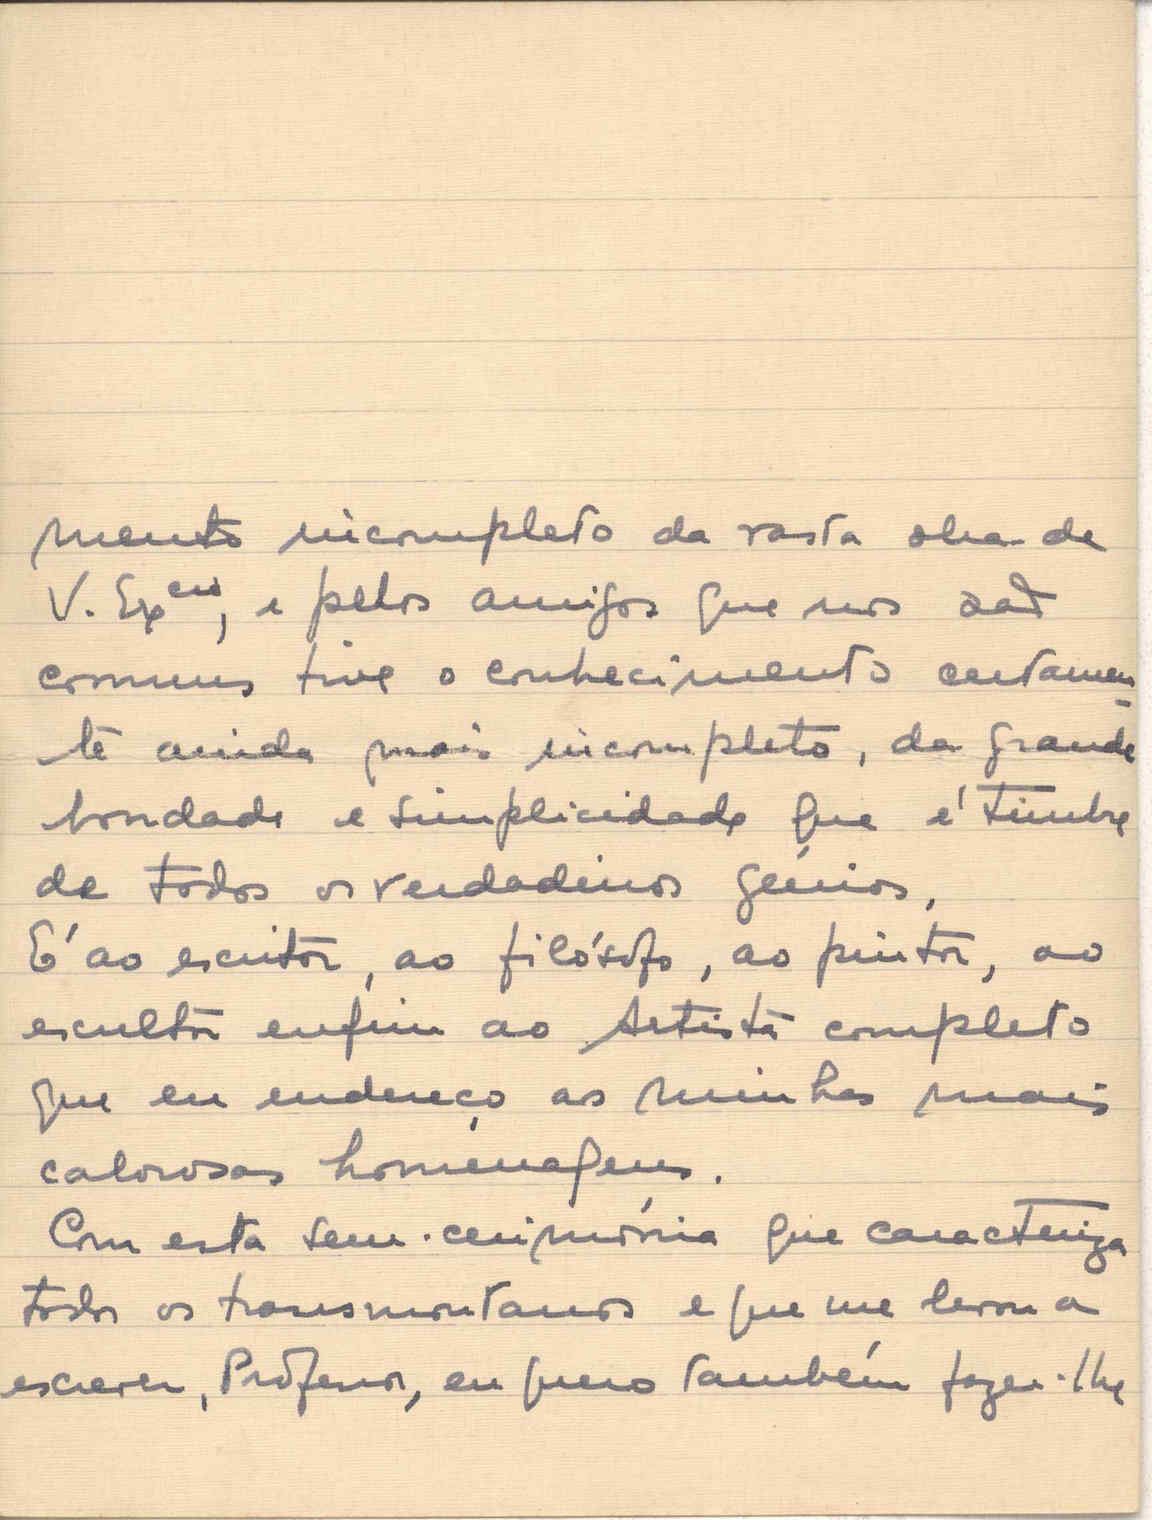 mento incompleto da vasta obra de
V. Ex.cia, e pelos amigos que nos são
comuns tive o conhecimento certamen-
te ainda mais incompleto, da grande
bondade e simplicidade que é timbre
de todos os verdadeiros génios.
É ao escritor, ao filósofo, ao pintor, ao
escultor enfim ao Artista completo
que eu endereço as minhas mais
calorosas homenagens.
Com esta sem-cerimónia que caracteriza
todos os transmontanos e que me levou a
escrever, Professor, eu quero também fazer-lhe